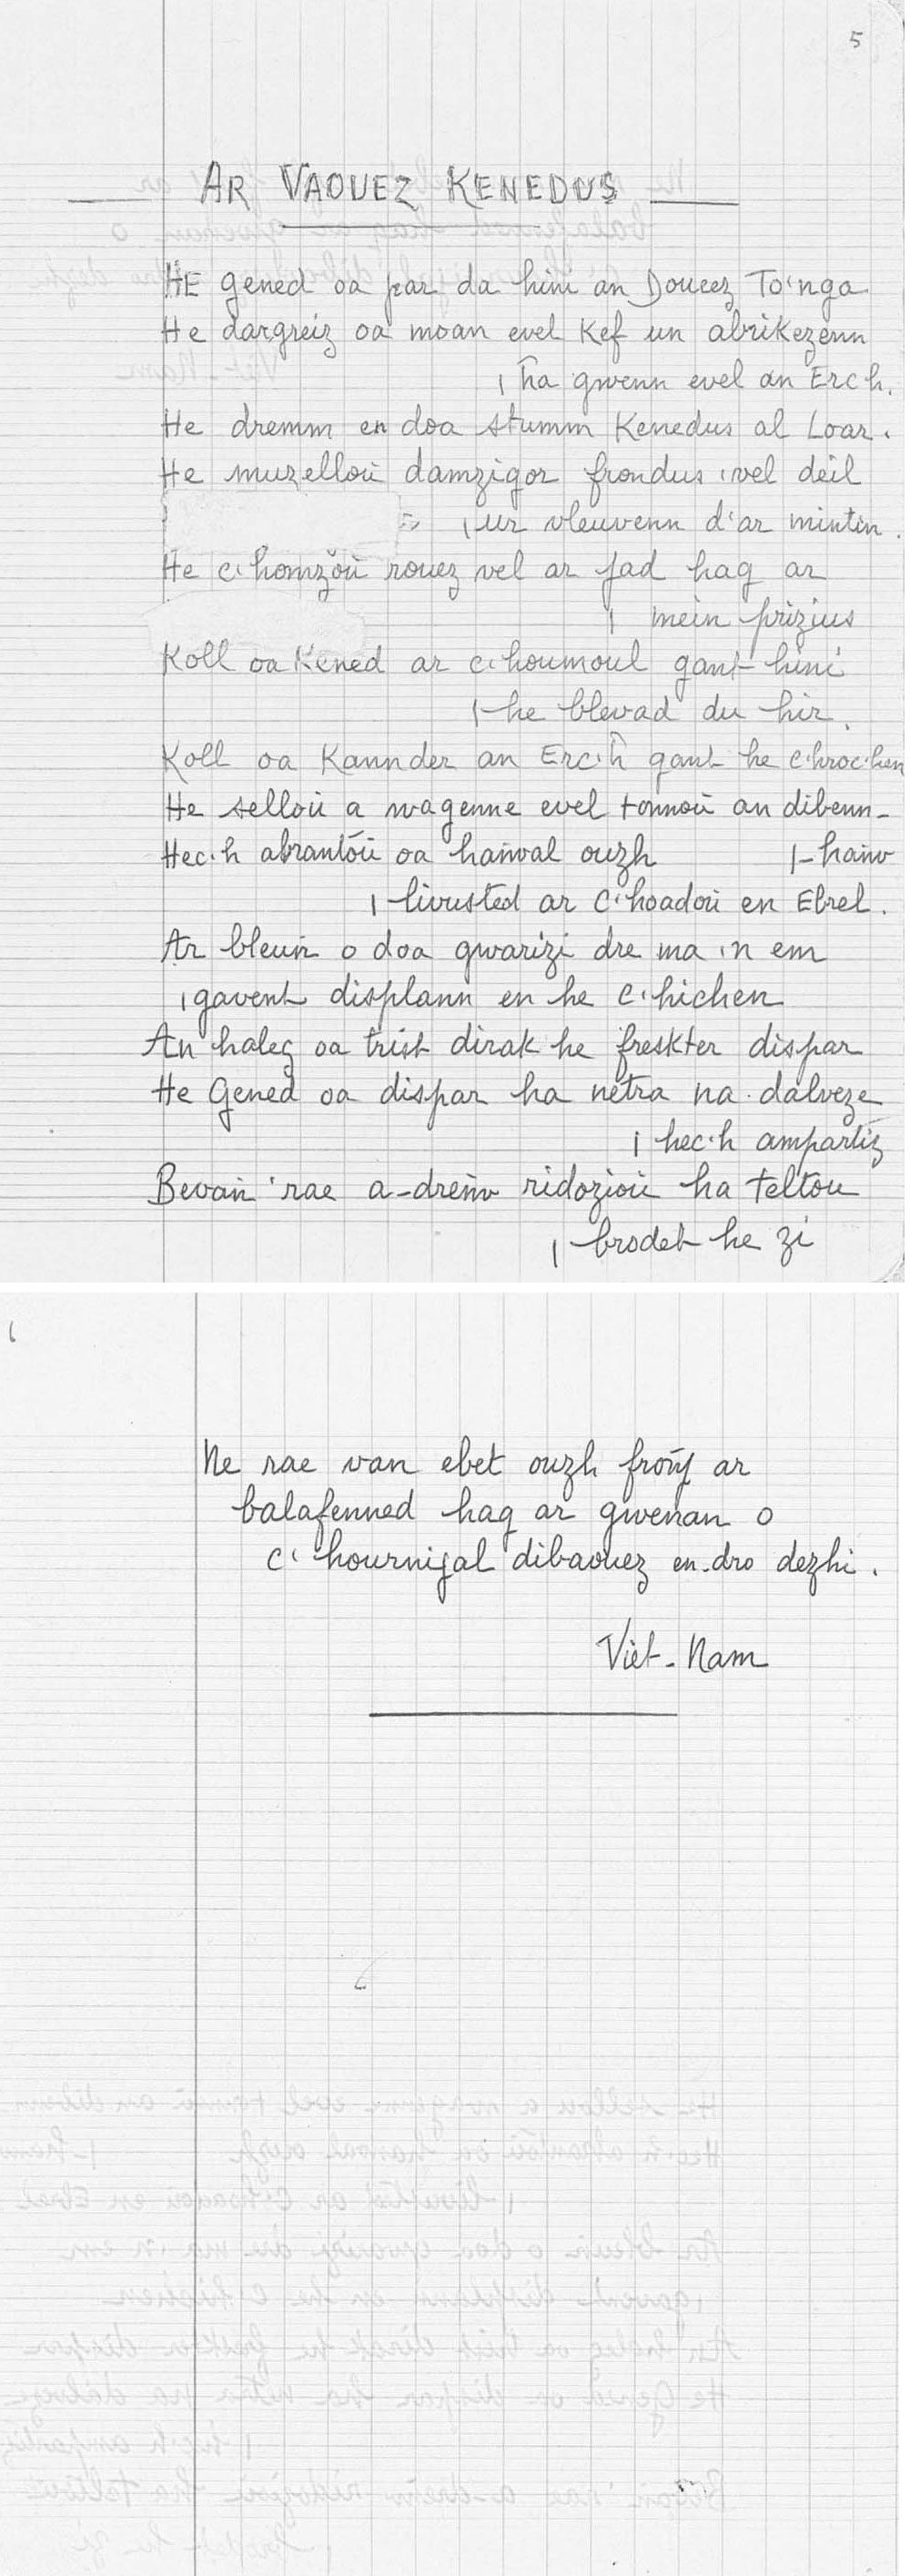 5
AR VAOUEZ KENEDUS
HE gened oa par da hini an Doueez To'nga
He dargreiz oa moan evel Kef un abrikezenn
ha gwenn evel an Erc'h.
He dremm en doa stumm Kenedus al Loar.
He muzelloù damzigor frondus 'vel deil
ur vleuvenn d'ar mintin.
He c'homzoù rouez vel ar jad hag ar
mein prizius
Koll oa Kened ar c'houmoul gant hini
he blevad du hir.
Koll oa Kannder an Erc'h gant he c'hroc'hen
He selloù a wagenne evel tonnoù an dibenn-
Hec'h abrantoù oa hañval ouzh -hañv
livusted ar C'hoadoù en Ebrel.
Ar bleuñ o doa gwarizi dre ma 'n em
gavent displann en he c'hichen
An haleg oa trist dirak he freskter dispar
He Gened oa dispar ha netra na dalveze
hec'h ampartiz
Bevañ 'rae a-dreñv ridozioù ha teltoù
brodet he zi
6
Ne rae van ebet ouzh from ar
balafenned hag ar gwenan o
c'hournijal dibaouez en-dro dezhi.
Viêt-Nam